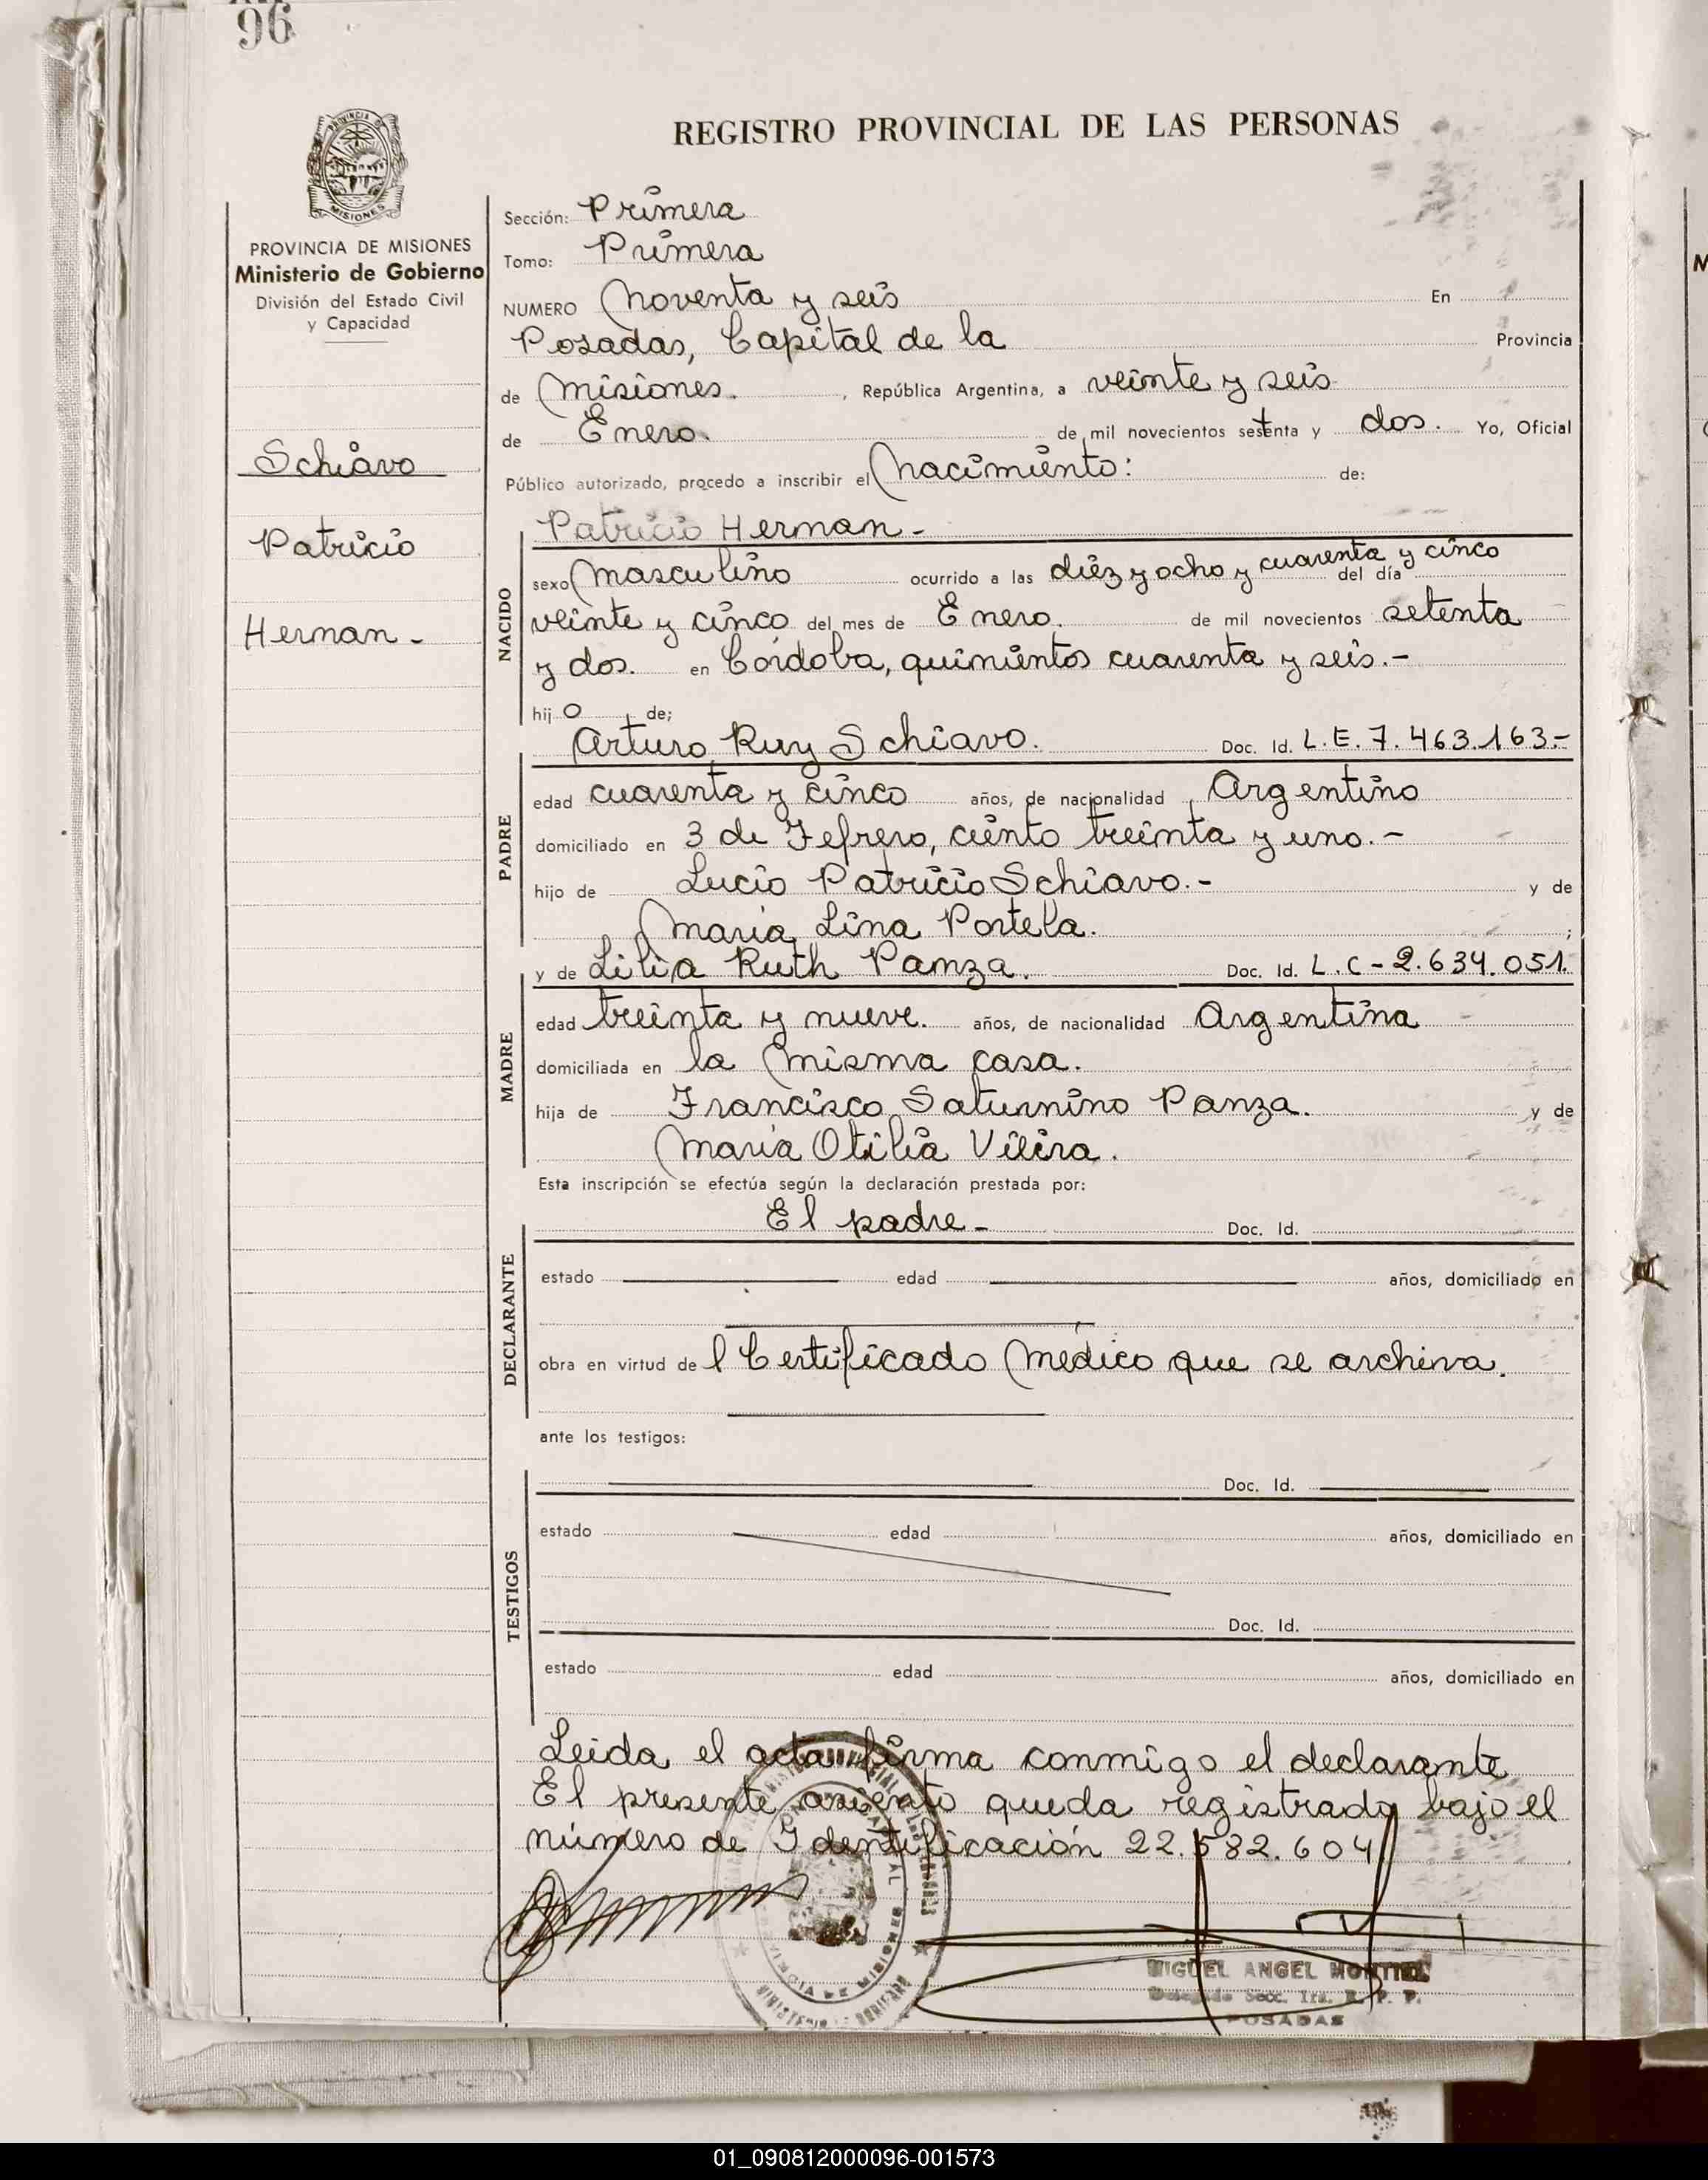 96
PROVINCIA DE MISIONES
Ministerio de Gobierno
División del Estado Civil
y Capacidad
Schiavo
Patricio
Hernan -
REGISTRO PROVINCIAL DE LAS PERSONAS
Sección: Primera
Tomo: Primera
NUMERO Noventa y seis En
Posadas, Capital de la Provincia
de Misiones. , República Argentina, a veinte y seis
de Enero. de mil novecientos setenta y dos. Yo, Oficial
Público autorizado, procedo a inscribir el Nacimiento: de:
NACIDO
Patricio Hernan -
sexo Masculino ocurrido a las diéz y ocho y cuarenta y cinco del día
veinte y cinco del mes de Enero. de mil novecientos setenta
y dos. en Córdoba, quinientos cuarenta y seis.-
hij o de;
PADRE
Arturo Ruy Schiavo. Doc. Id. L.E. 7.463.163.-
edad cuarenta y cinco años, de nacionalidad Argentino
domiciliado en 3 de Febrero, ciento treinta y uno.-
hijo de Lucio Patricio Schiavo.- y de
María Lina Portela. ;
MADRE
y de Lilia Ruth Panza. Doc. Id. L.C - 2.634.051.
edad treinta y nueve. años, de nacionalidad Argentina
domiciliada en la Misma casa.
hija de Francisco Saturnino Panza. y de
María Otilia Vieira.
Esta inscripción se efectúa según la declaración prestada por:
DECLARANTE
El padre - Doc. Id.
estado edad años, domiciliado en
obra en virtud de l Certificado Médico que se archiva.
ante los testigos:
TESTIGOS
Doc. Id.
estado edad años, domiciliado en
Doc. Id.
estado edad años, domiciliado en
Leida el acta firma conmigo el declarante
El presente asiento queda registrado bajo el
número de Identificación 22.582.604
MIGUEL ANGEL MONTIEL
Delegado Secc. 1ra. R. P. P.
POSADAS
01_090812000096-001573